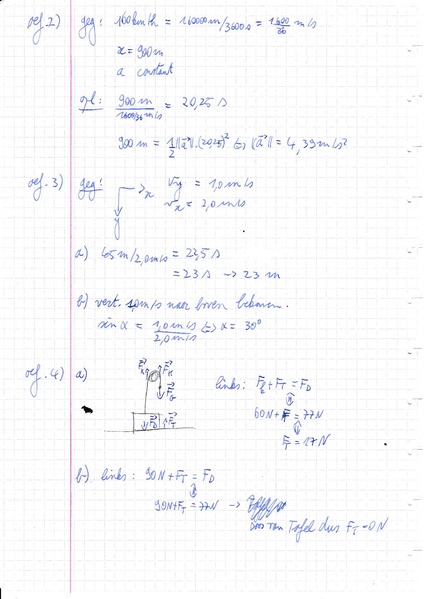 oef. 2) geg: 160 km/h = 160000 m/3600 s = 1600/36 m/s
x = 900 m
a constant
opl: 900 m / 1600/36 m/s = 20,25 s
900 m = 1/2 ||a→|| . (20,25)² <=> ||a→|| = 4,39 m/s²
oef. 3) geg: x vy = 1,0 m/s
y vx = 2,0 m/s
a) 45 m/2,0 m/s = 22,5 s
= 23 s → 23 m
b) vert. 1,0 m/s naar boven
sin α = 1,0 m/s / 2,0 m/s <=> α = 30°
oef. 4) a)
links: + FT = FD
60 N + F = 77 N
FT = 17 N
b) links: 90 N + FT = FD
90 N + FT = 77 N →
Tafel dus FT = 0 N